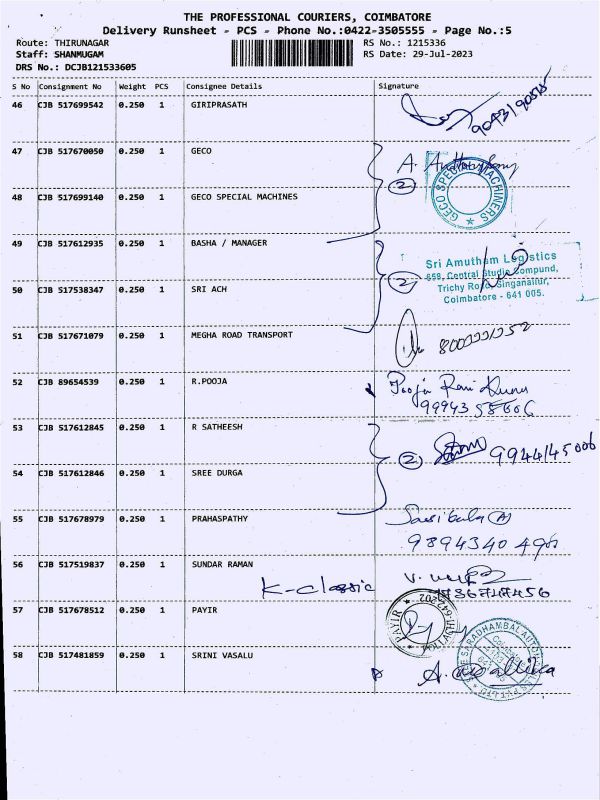 THE PROFESSIONAL COURIERS, COIMBATORE
Delivery Runsheet - PCS - Phone No.:0422-3505555 - Page No.:5
Route: THIRUNAGAR RS No.: 1215336
Staff: SHANMUGAM RS Date: 29-Jul-2023
DRS No.: DCJB121533605
S No Consignment No Weight PCS Consignee Details Signature
46 CJB 517699542 0.250 1 GIRIPRASATH
47 CJB 517670050 0.250 1 GECO
2
GECO SPECIAL MACHINERS
48 CJB 517699140 0.250 1 GECO SPECIAL MACHINES
49 CJB 517612935 0.250 1 BASHA / MANAGER
Sri Amutham Logistics
659, Central Studio Compund,
2
Trichy Road, Singanallur,
Coimbatore - 641 005.
50 CJB 517538347 0.250 1 SRI ACH
51 CJB 517671079 0.250 1 MEGHA ROAD TRANSPORT
52 CJB 89654539 0.250 1 R.POOJA
Pooja
53 CJB 517612845 0.250 1 R SATHEESH
2 9944145006
54 CJB 517612846 0.250 1 SREE DURGA
55 CJB 517678979 0.250 1 PRAHASPATHY
56 CJB 517519837 0.250 1 SUNDAR RAMAN
K-classic
57 CJB 517678512 0.250 1 PAYIR
PAYIR
58 CJB 517481859 0.250 1 SRINI VASALU